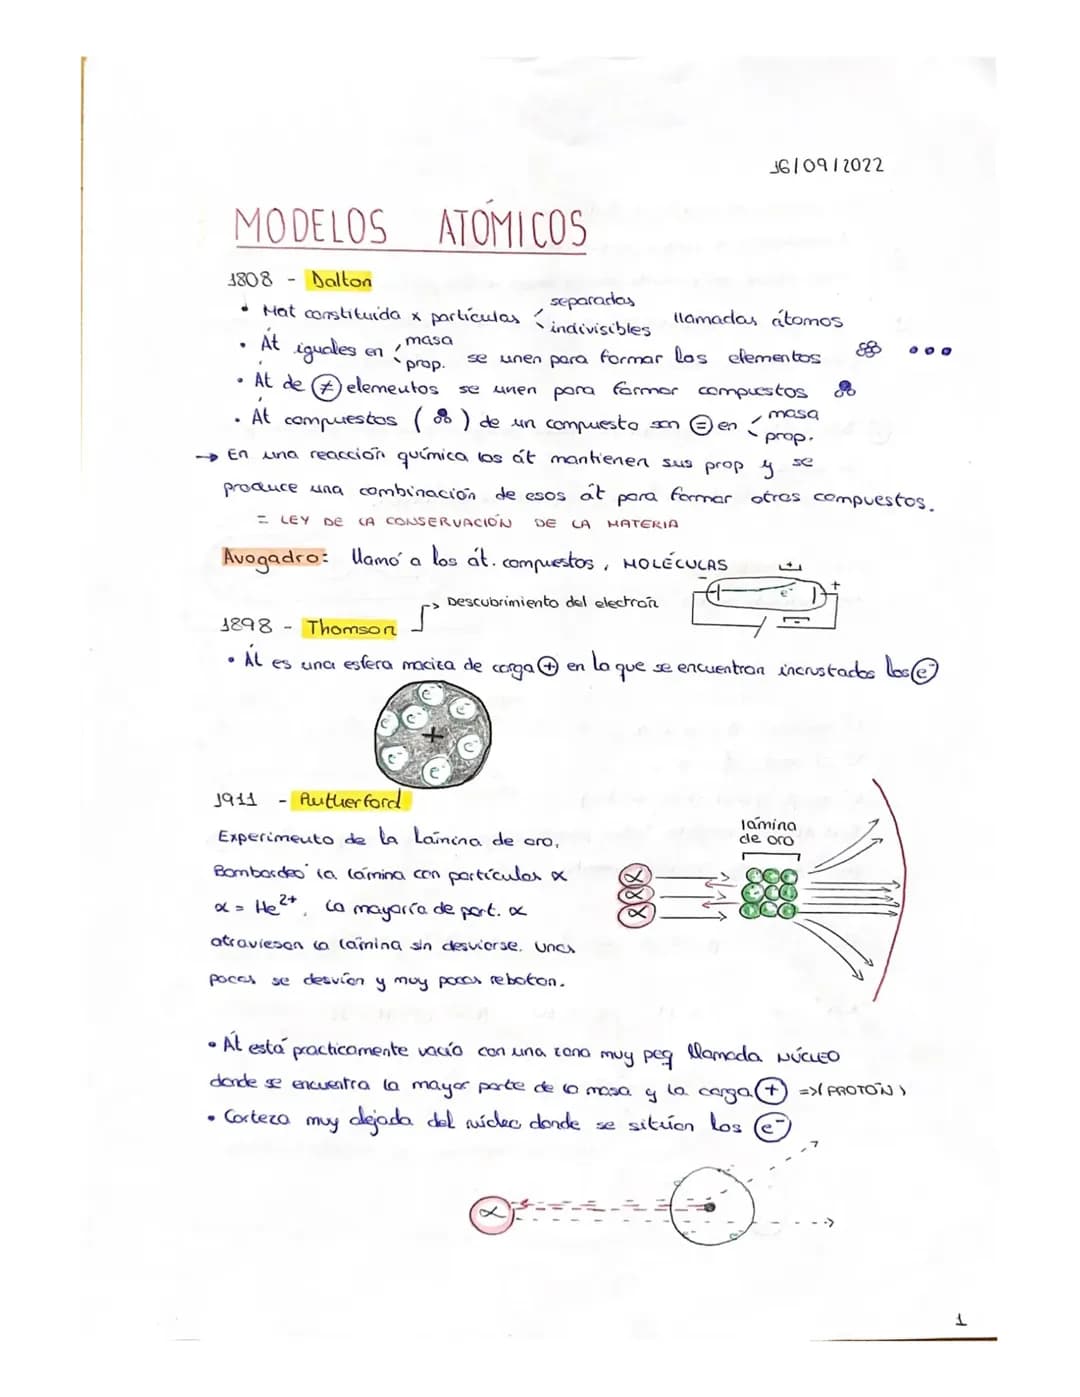 16/09/2022
MODELOS ATÓMICOS
1808 - Dalton
• Mat constituida x partículas < separadas / indivisibles llamadas átomos
• Át iguales en < masa / prop. se unen para formar los elementos
• Át de ≠ elementos se unen para formar compuestos
• Át compuestos ( ) de un compuesto son = en < masa / prop.
→ En una reacción química los át mantienen sus prop y se
produce una combinación de esos át para formar otros compuestos.
= LEY DE LA CONSERVACIÓN DE LA MATERIA
Avogadro: llamó a los át. compuestos, MOLÉCULAS
- + e⁻ + -
→ Descubrimiento del electrón
1898 - Thomson
• Át es una esfera maciza de carga + en la que se encuentran incrustados los e⁻
e⁻ e⁻ e⁻ e⁻ + e⁻ e⁻ e⁻
1911 - Rutherford
lámina
de oro
Experimento de la Lámina de oro.
Bombardeó la lámina con partículas α
α α α
α = He²⁺. La mayoría de part. α
atraviesan la lámina sin desviarse. Unas
pocas se desvían y muy pocas rebotan.
• Át está practicamente vacío con una zona muy peq llamada NÚCLEO
donde se encuentra la mayor parte de la masa y la carga + => (PROTÓN)
• Corteza muy alejada del núcleo donde se sitúan los e⁻
α
1